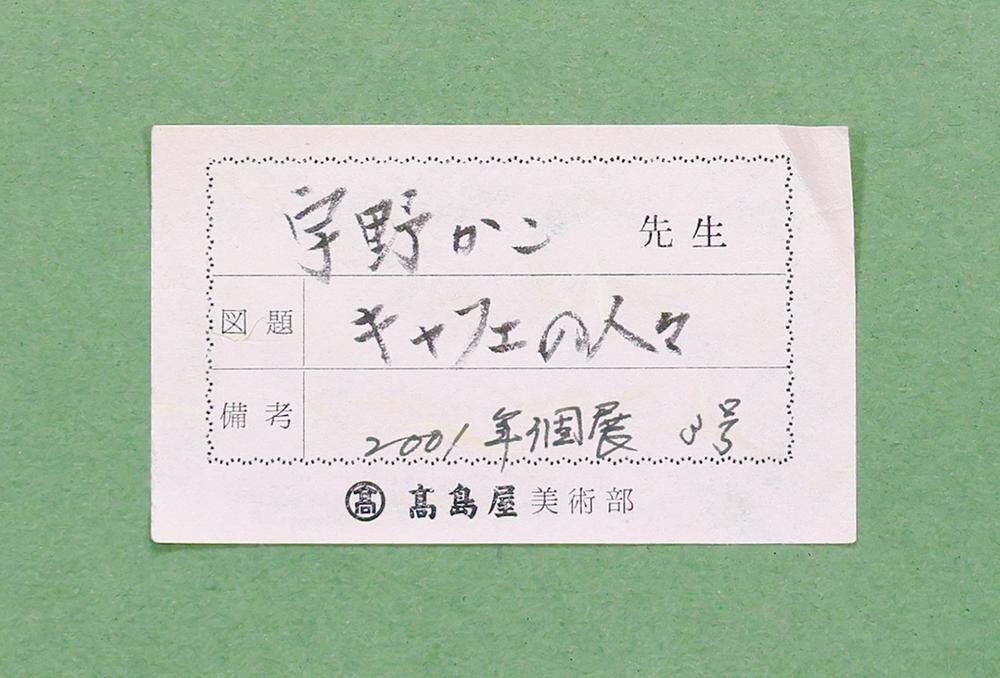 宇野カン 先生
図題 キャフェの人々
備考 2001年個展 8号
髙 髙島屋美術部